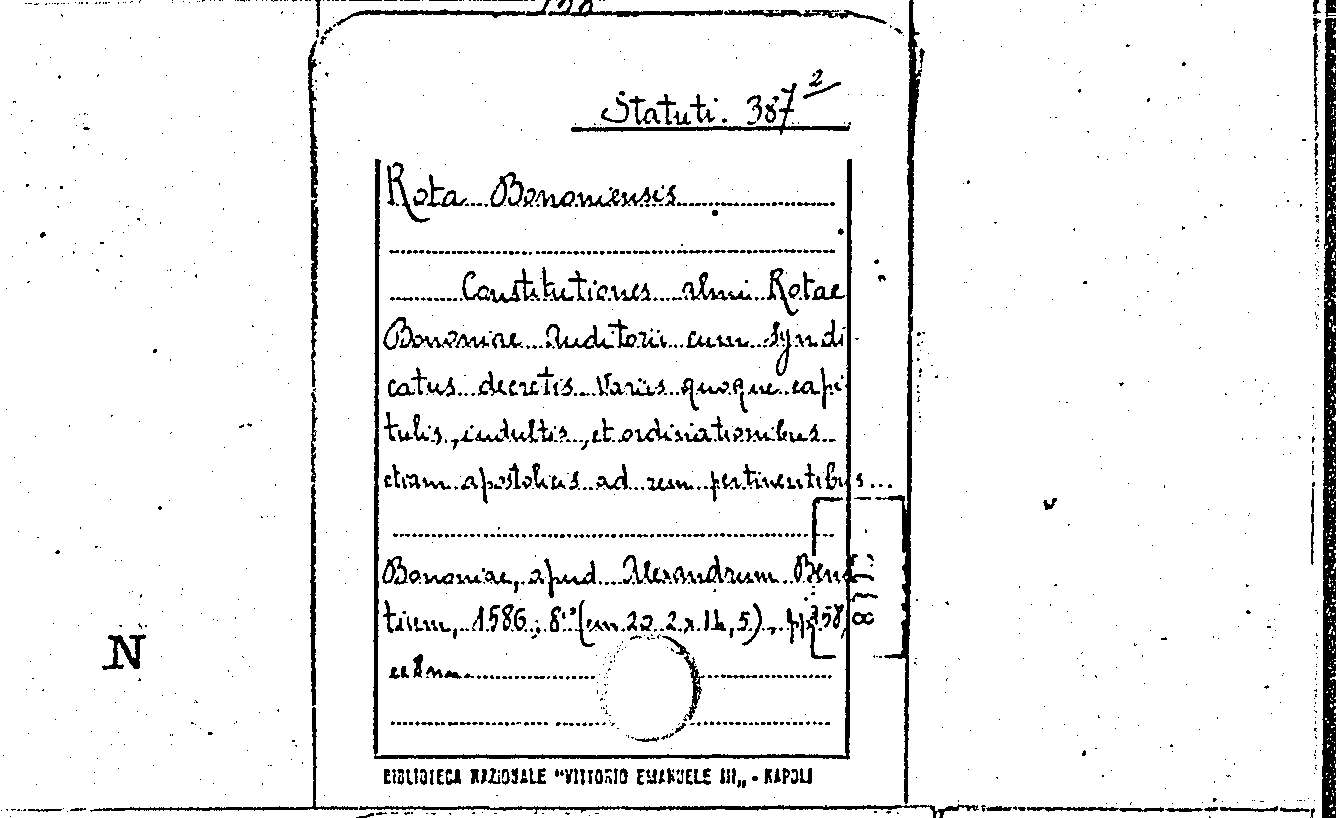 Statuti. 387²
Rota Bononiensis
Constitutiones almi Rotae
Bononiae Auditorii cum Syndi
catus decretis Variis quoque capi
tulis, indultis, et ordinationibus
etiam apostolicis ad rem pertinentibus...
Bononiae, apud Alexandrum Bena
tium, 1586; 8° (cm 20,2 x 14,5), pp. 358,
N
BIBLIOTECA NAZIONALE "VITTORIO EMANUELE III„ - NAPOLI